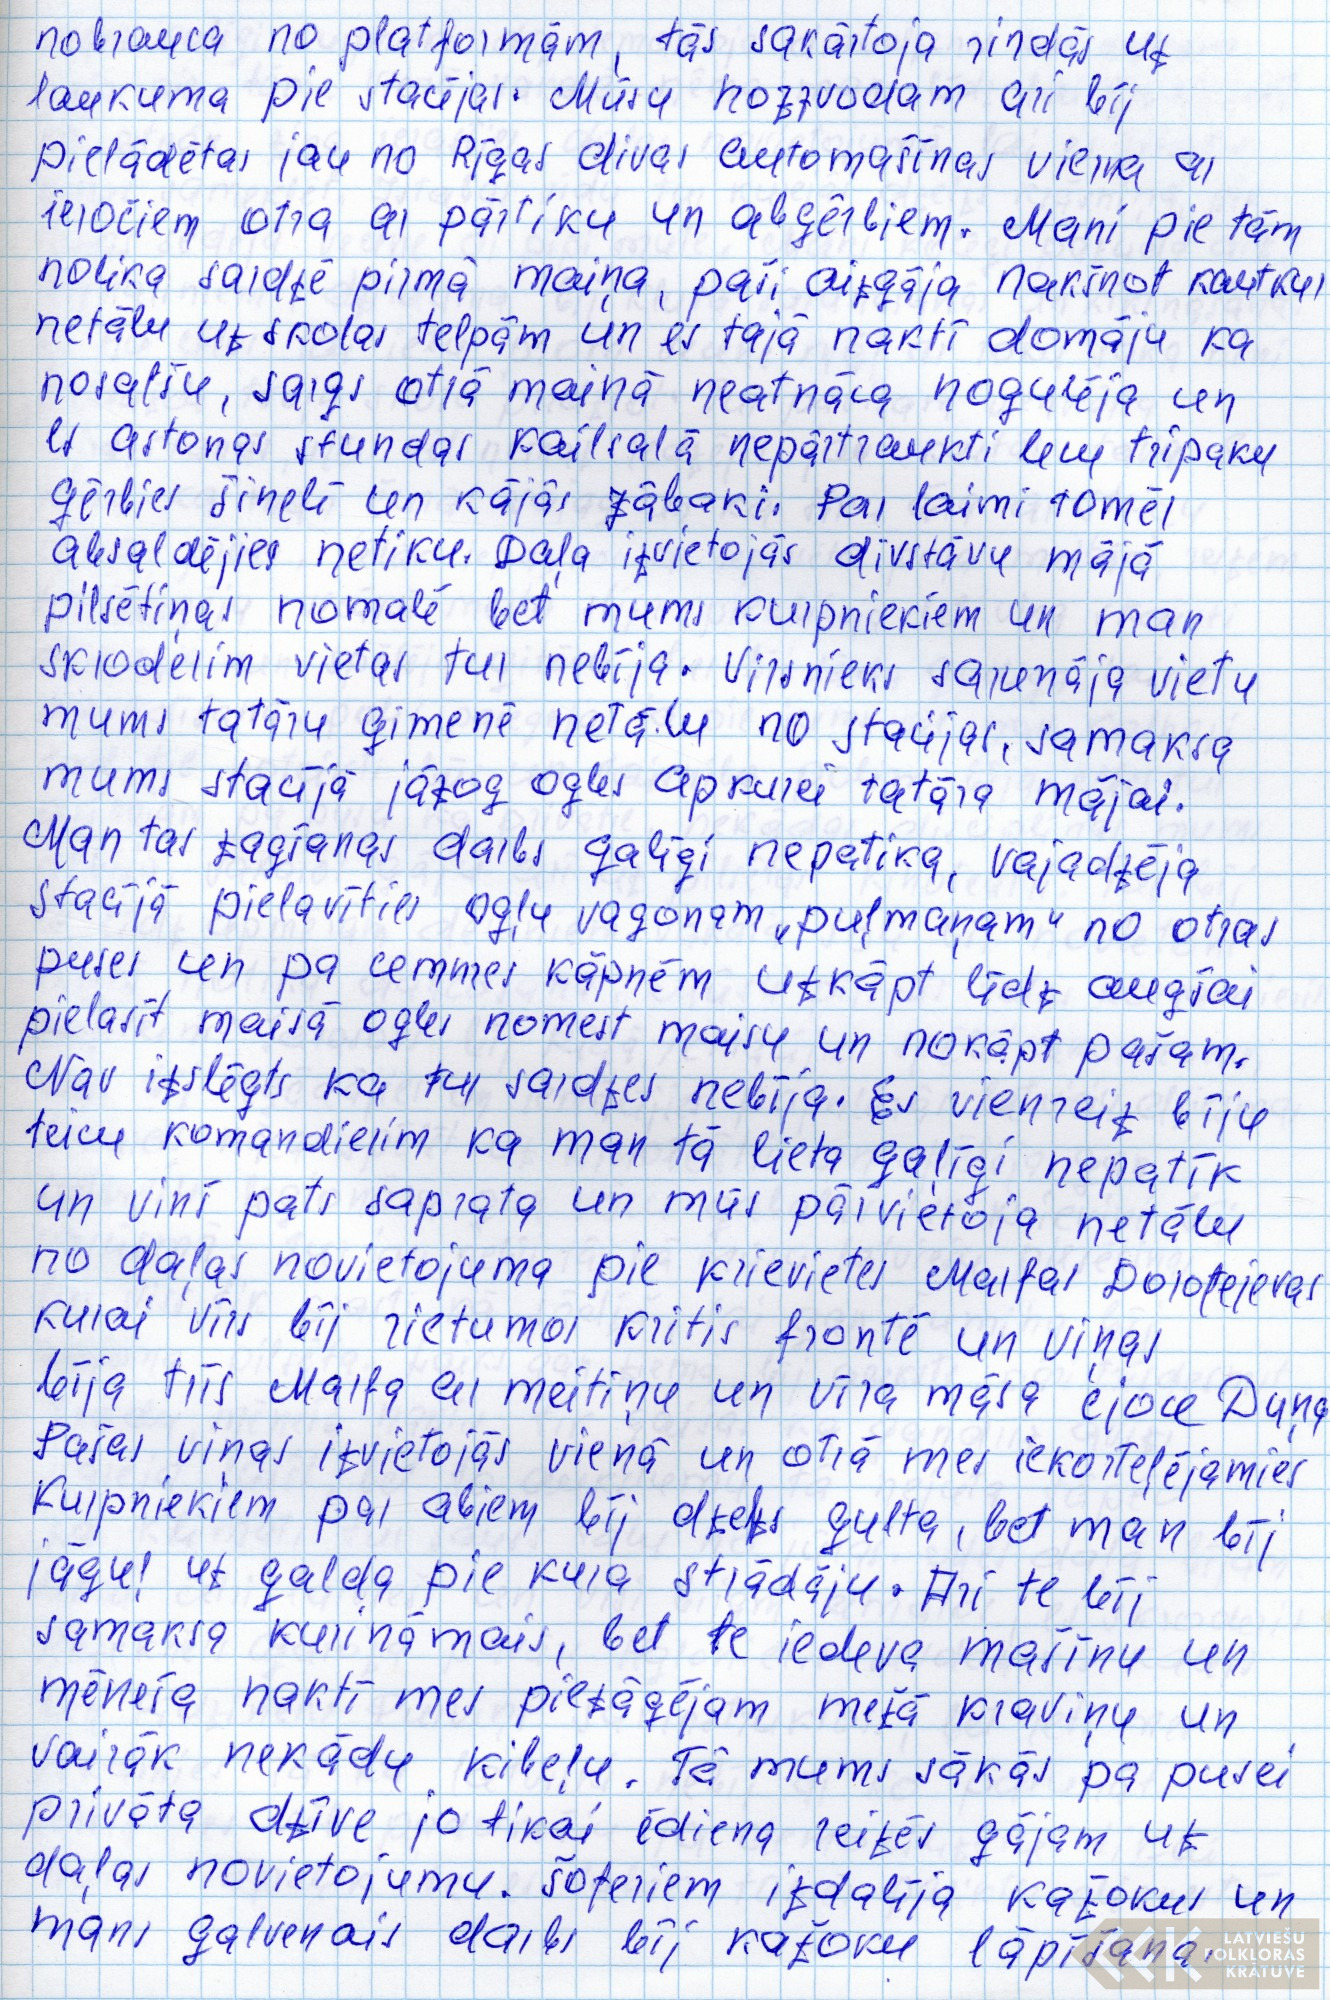 nobrauca no platformām, tās sakārtoja rindās uz
laukuma pie stacijas. Mūsu hozzvodam ari bij
pielādētas jau no Rīgas divas automašīnas viena ar
ieročiem otra ar pārtiku un abģērbiem. Mani pie tām
nolika sardzē pirmā maiņa, paši aizgāja nakšņot kautkur
netālu uz skolas telpām un es tajā naktī domāju ka
nosalšu, sargs otrā mainā neatnāca nogulēja un
es astonas stundas kailsalā nepārtraukti lecu tripaku
ģērbies šinelī un kājās zābaki. Par laimi tomēr
absaldējies netiku. Daļa izvietojās divstāvu mājā
pilsētiņas nomalē bet mums kurpniekiem un man
skroderim vietas tur nebija. Virsnieks sarunāja vietu
mums tatāru ģimenē netālu no stacijas, samaksa
mums stacijā jāzog ogles apkurei tatāra mājai.
Man tas zagšanas darbs galīgi nepatika, vajadzēja
stacijā pielavīties ogļu vagonam „puļmaņam" no otras
puses un pa cemmes kāpnēm uzkāpt līdz augšai
pielasīt maisā ogles nomest maisu un nokāpt pašam.
Nav izslēgts ka tur sardzes nebija. Es vienreiz bīju
teicu komandierim ka man tā lieta gaļīgi nepatīk
un vinš pats saprata un mūs pārvietoja netālu
no daļas novietojuma pie krievietes Marfas Dorofejevas
kurai vīrs bij rietumos kritis frontē un viņas
bija trīs Marfa ar meitiņu un vīra māsa čjoce Duņa
Pašas viņas izvietojās vienā un otrā mes iekorteļējamies
Kurpniekiem par abiem bij dzelzs gulta, bet man bij
jāguļ uz galda pie kura strādāju. Ari te bij
samaksa kurināmais, bet te iedeva mašīnu un
mēneša naktī mes piezāģējam mežā kraviņu un
vairāk nekādu ķibeļu. Tā mums sākās pa pusei
privāta dzīve jo tikai ēdiena reizēs gājam uz
daļas novietojumu. Šoferiem izdalīja kažokus un
mans galvenais darbs bij kažoku lāpīšana.
LATVIEŠU
FOLKLORAS
KRĀTUVE